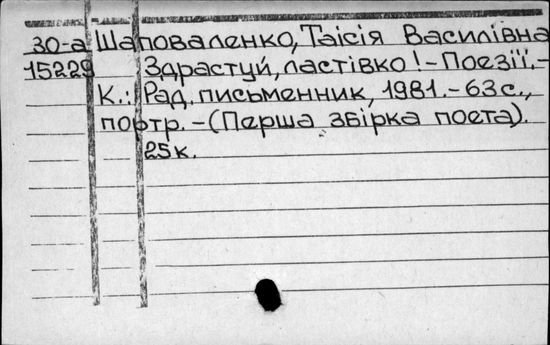 30-а Шаповаленко, Таісія Василівна
15229 Здрастуй, ластівко! - Поезії. -
К.: Рад. письменник, 1981. - 63 с.,
портр. - (Перша збірка поета).
25к.